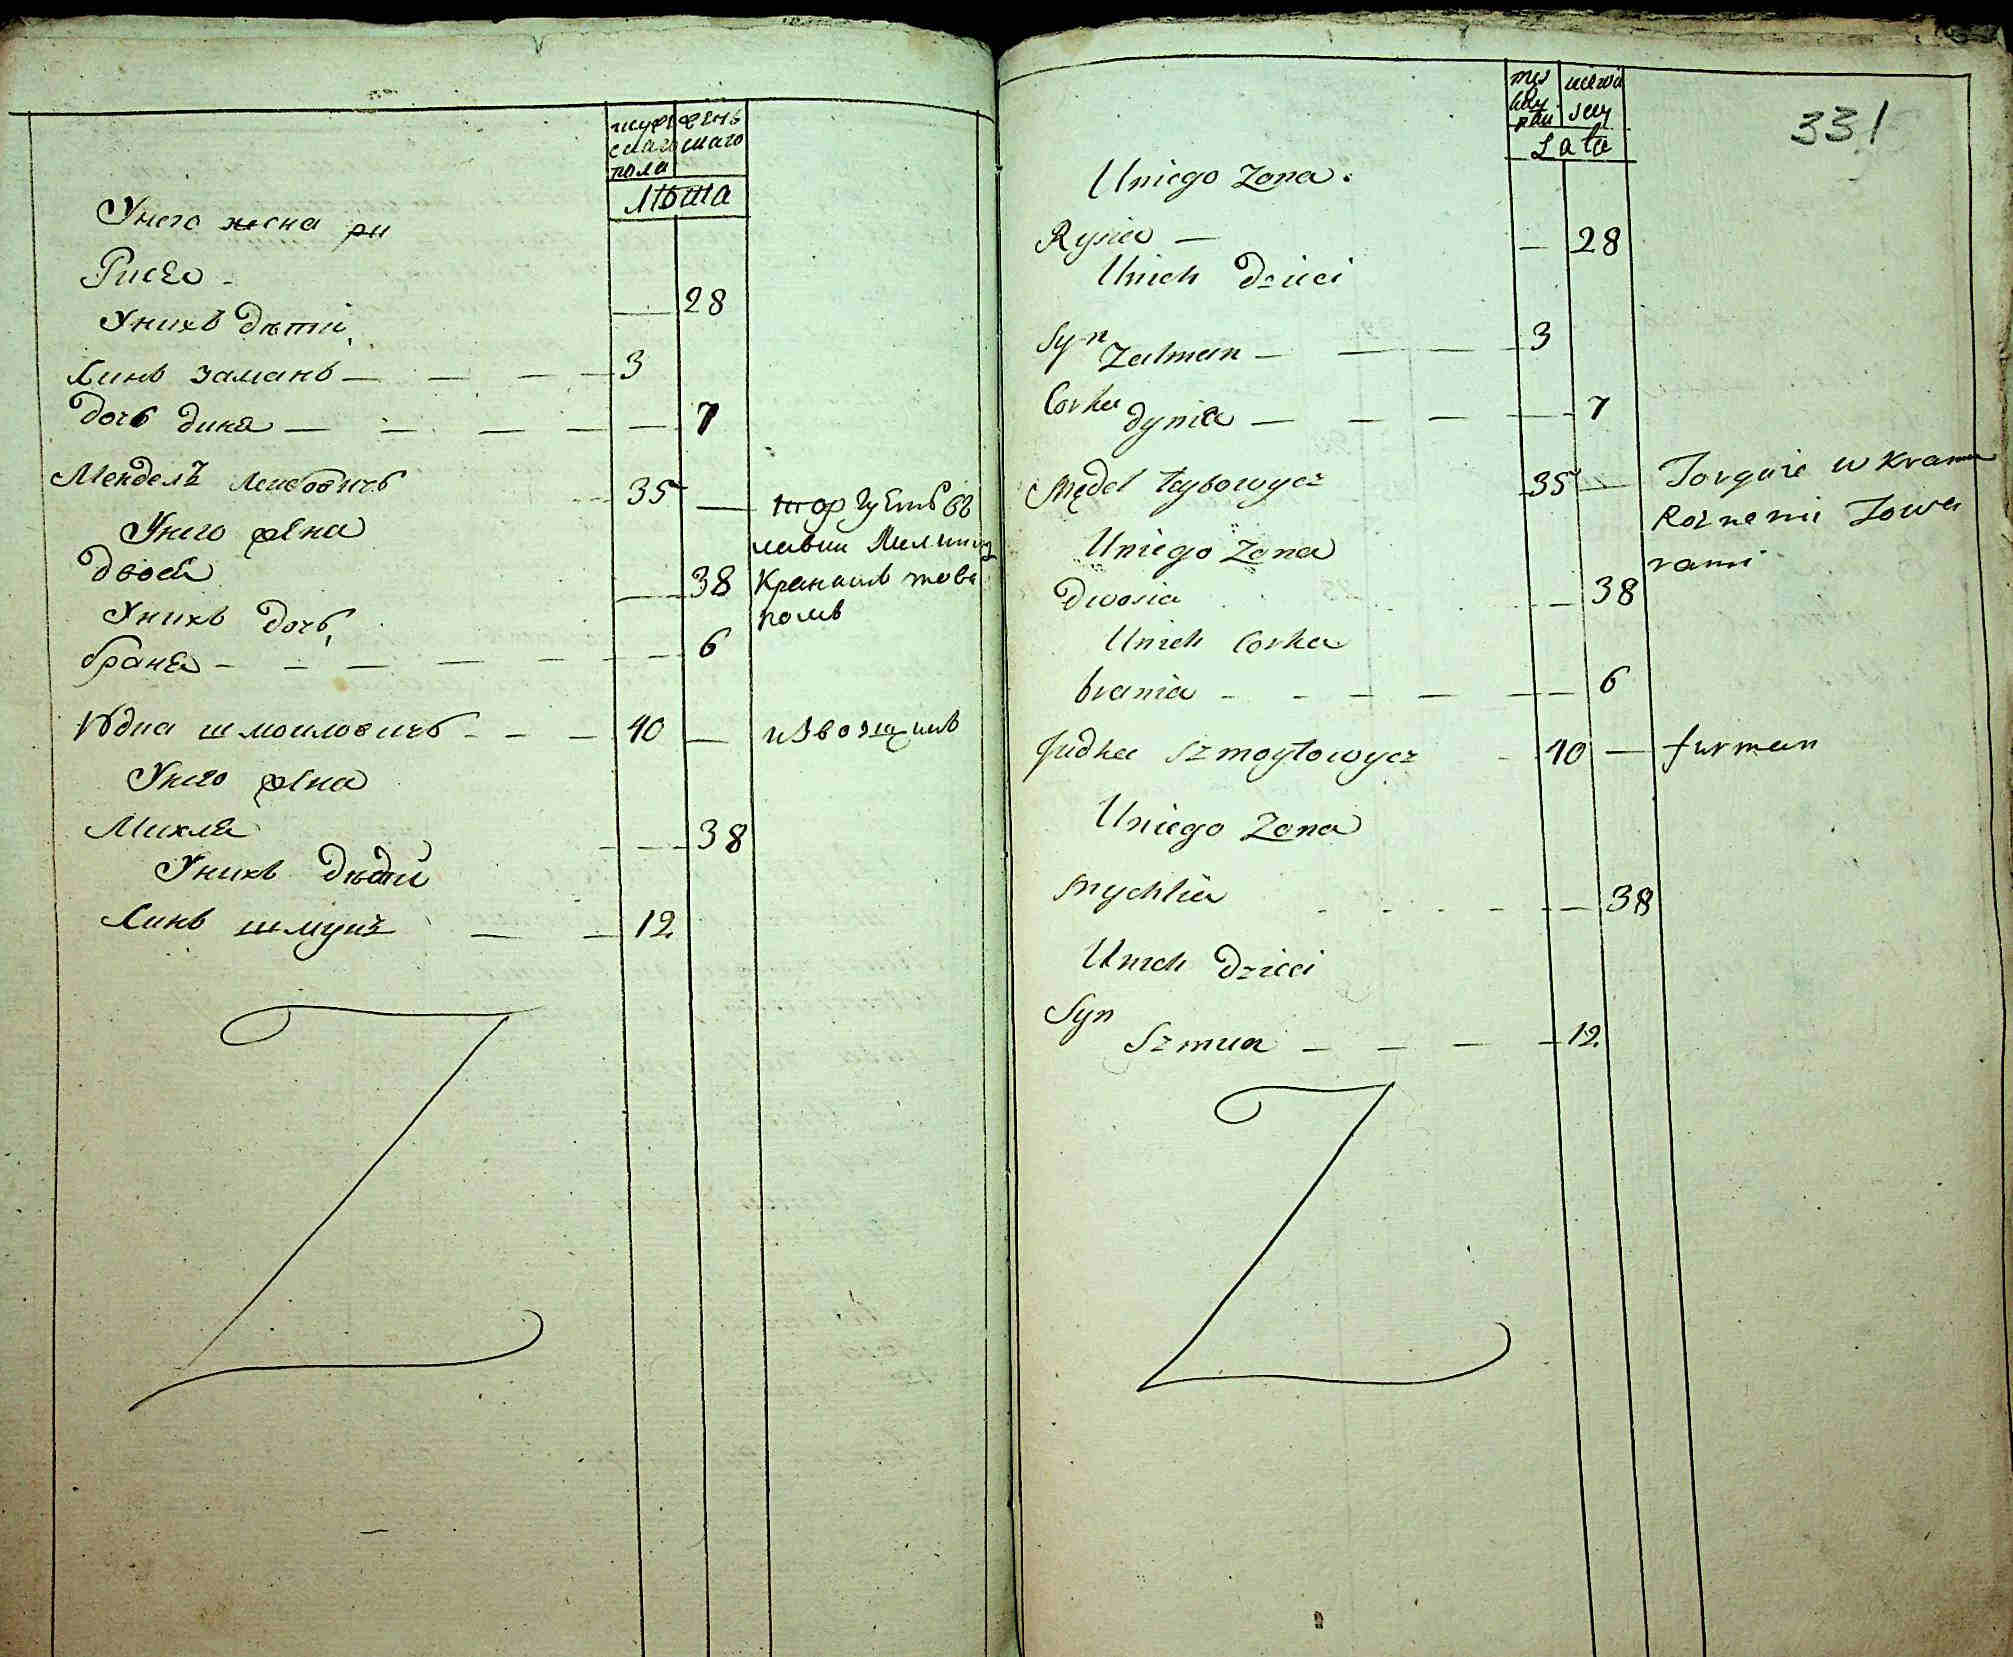 мужескаго пола
женьскаго
Лѣта
Унего жена ри
Рися
Унихъ дѣти
Синъ Заманъ 3
Дочь Диня 7
28
Мендель Леибовичъ 35
торгуетъ въ
лавки
товаромъ
Унего жена
Двося 38
Унихъ дочь
Браня 6
Юдка Шмоиловичъ 40 извощикъ
Унего жена
Михля 38
Унихъ дѣти
Синъ Шмуня 12
331
męskey płci
niewiasey
Lata
Uniego Zona
Rysia 28
Unich Dzieci
Syn Zalman 3
Corka Dynia 7
Mędel Leybowycz 35 Torguie w Krame
Roznemi Towa
rami
Uniego Zona
Dwosia 38
Unich Corka
brania 6
Judka Szmoyłowycz 40 furman
Uniego Zona
Mychlia 38
Unich Dzieci
Syn
Szmua 12